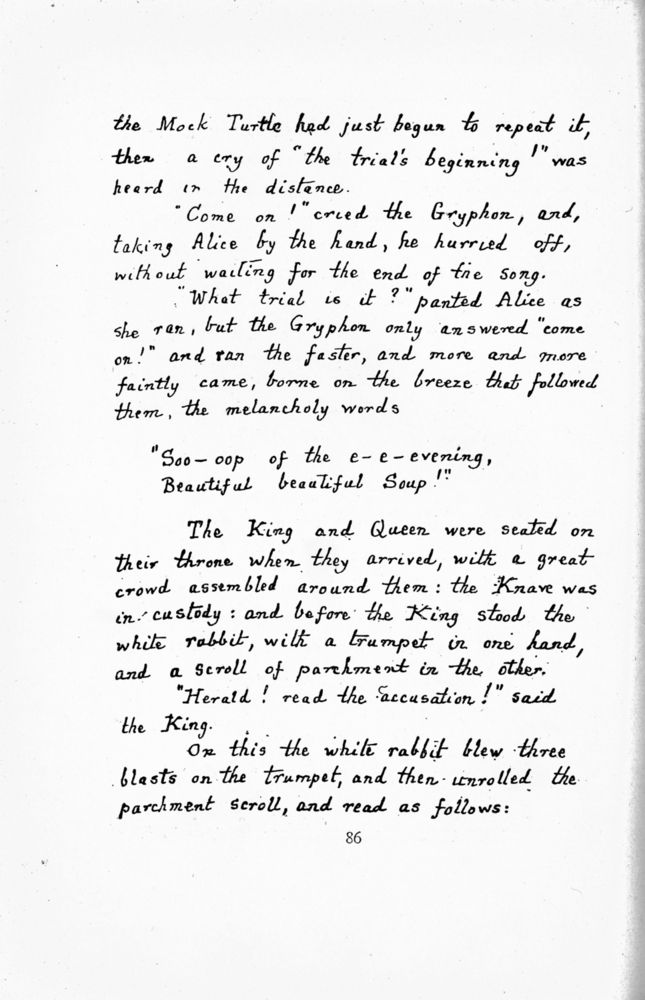 the Mock Turtle had just begun to repeat it,
then a cry of "the trial's beginning!" was
heard in the distance.
"Come on!" cried the Gryphon, and,
taking Alice by the hand, he hurried off,
without waiting for the end of the song.
"What trial is it?" panted Alice as
she ran, but the Gryphon only answered "come
on!" and ran the faster, and more and more
faintly came, borne on the breeze that followed
them, the melancholy words
"Soo-oop of the e-e-evening,
Beautiful beautiful Soup!"
The King and Queen were seated on
their throne when they arrived, with a great
crowd assembled around them: the Knave was
in custody: and before the King stood the
white rabbit, with a trumpet in one hand,
and a scroll of parchment in the other.
"Herald! read the accusation!" said
the King.
On this the white rabbit blew three
blasts on the trumpet, and then unrolled the
parchment scroll, and read as follows:
86